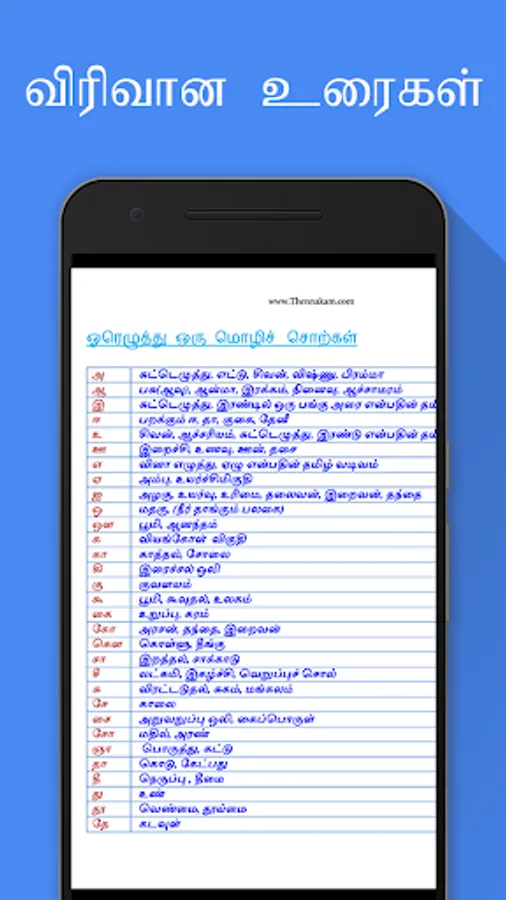 விரிவான உரைகள்
www.Thennakam.com
ஓரெழுத்து ஒரு மொழிச் சொற்கள்
அ சுட்டெழுத்து, எட்டு, சிவன், விஷ்ணு, பிரம்மா
ஆ பசு(ஆவு), ஆன்மா, இரக்கம், நினைவு, ஆச்சாமரம்
இ சுட்டெழுத்து, இரண்டில் ஒரு பங்கு அரை என்பதின் தமி
ஈ பறக்கும் ஈ, தா, குகை, தேனீ
உ சிவன், ஆச்சரியம், சுட்டெழுத்து, இரண்டு என்பதின் தமி
ஊ இறைச்சி, உணவு, ஊன், தசை
எ வினா எழுத்து, ஏழு என்பதின் தமிழ் வடிவம்
ஏ அம்பு, உயர்ச்சிமிகுதி
ஐ அழகு, உயர்வு, உரிமை, தலைவன், இறைவன், தந்தை
ஒ மதகு, (நீர் தாங்கும் பலகை)
ஔ பூமி, ஆனந்தம்
க வியங்கோள் விகுதி
கா காத்தல், சோலை
கி இரைச்சல் ஒலி
கு குவளயம்
கூ பூமி, கூவுதல், உலகம்
கை உறுப்பு, கரம்
கோ அரசன், தந்தை, இறைவன்
கௌ கொள்ளு, தீங்கு
சா இறத்தல், சாக்காடு
சீ லட்சுமி, இகழ்ச்சி, வெறுப்புச் சொல்
சு விரட்டடுதல், சுகம், மங்கலம்
சே காலை
சை அறுவறுப்பு ஒலி, கைப்பொருள்
சோ மதில், அரண்
ஞா பொருத்து, கட்டு
தா கொடு, கேட்பது
தீ நெருப்பு , தீமை
து உண்
தூ வெண்மை, தூய்மை
தே கடவுள்